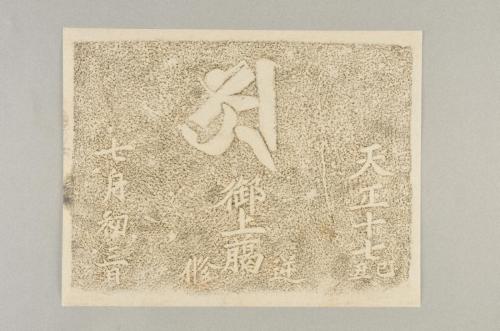 天正十七己丑
御上臈
逆修
七月初日